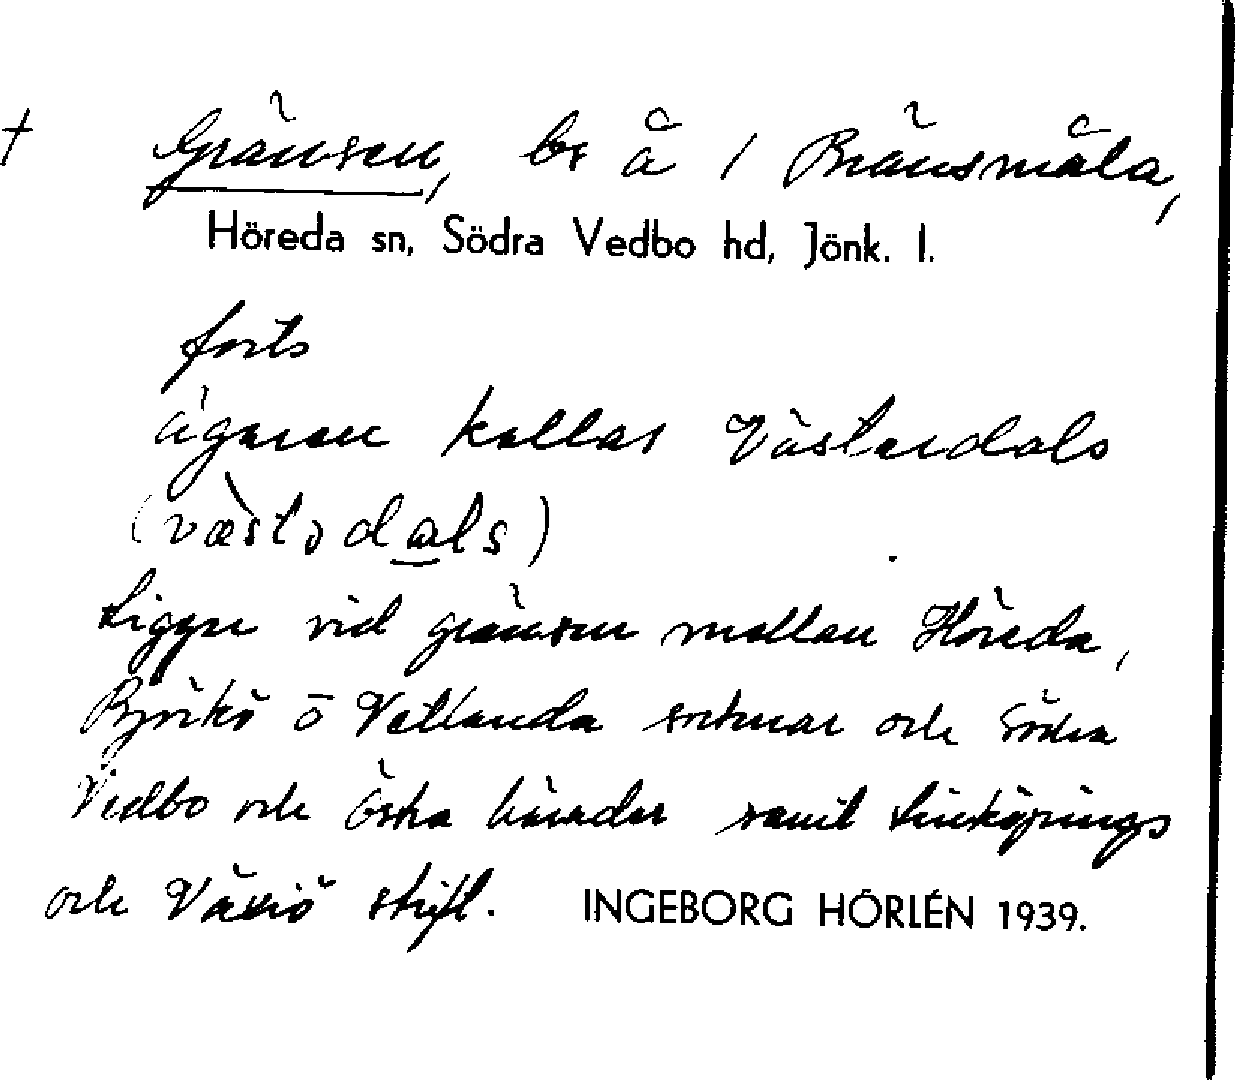 † Gränsen, br å 1 Bränsmåla,
Höreda sn, Södra Vedbo hd, Jönk. l.
forts
ägaren kallas Västerdals
(væstədals)
Ligger vid gränsen mellan Höreda,
Björkö o Vetlanda socknar och Södra
Vedbo och Östra härader samt Linköpings
och Växiö stift. INGEBORG HÖRLÉN 1939.